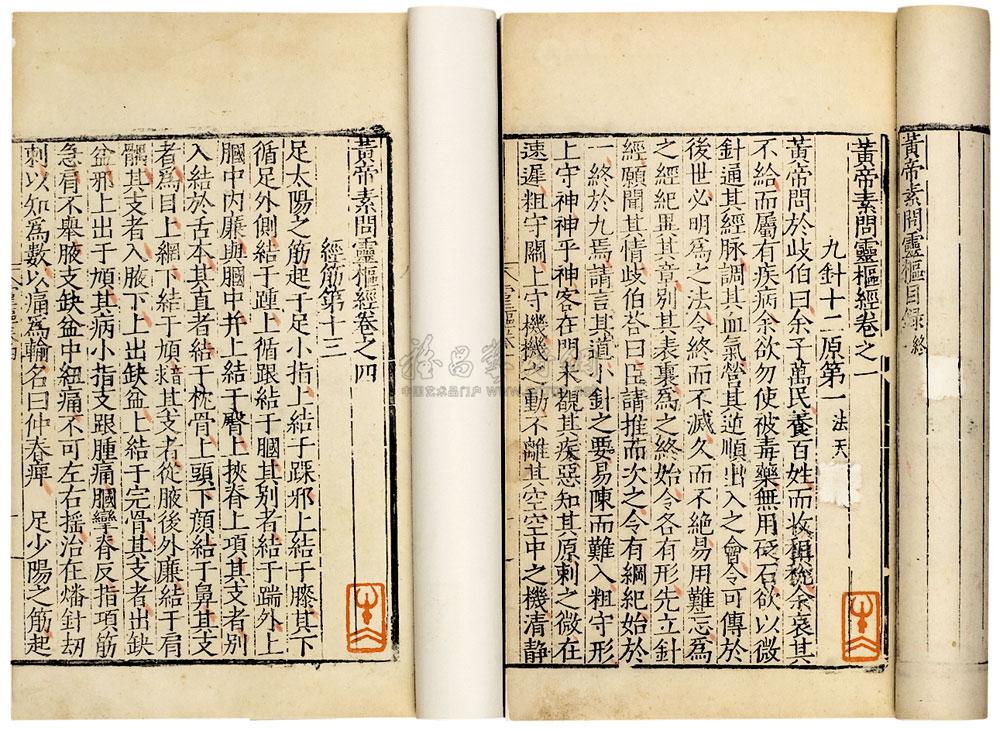 黃帝素問靈樞目錄 終
黃帝素問靈樞經卷之一
九針十二原第一 法天
黃帝問於歧伯曰余子萬民養百姓而收租稅余哀其
不給而屬有疾病余欲勿使被毒藥無用砭石欲以微
針通其經脉調其血氣營其逆順出入之會令可傳於
後世必明為之法令終而不滅久而不絕易用難忘為
之經紀異其章別其表裏為之終始令各有形先立針
經願聞其情歧伯荅曰臣請推而次之令有綱紀始於
一終於九焉請言其道小針之要易陳而難入粗守形
上守神神乎神客在門未覩其疾惡知其原刺之微在
速遲粗守關上守機機之動不離其空空中之機清靜
黃帝素問靈樞經卷之四
經筋第十三
足太陽之筋起于足小指上結于踝邪上結于膝其下
循足外側結于踵上循跟結于膕其別者結于踹外上
膕中內廉與膕中并上結于臀上挾脊上項其支者別
入結於舌本其直者結于枕骨上頭下顔結于鼻其支
者為目上網下結于頄其支者從腋後外廉結于肩
髃其支者入腋下上出缺盆上結于完骨其支者出缺
盆邪上出于頄其病小指支跟腫痛膕攣脊反折項筋
急肩不舉腋支缺盆中紐痛不可左右搖治在燔針刼
刺以知為數以痛為輸名曰仲春痺 足少陽之筋起
中国艺术品门户